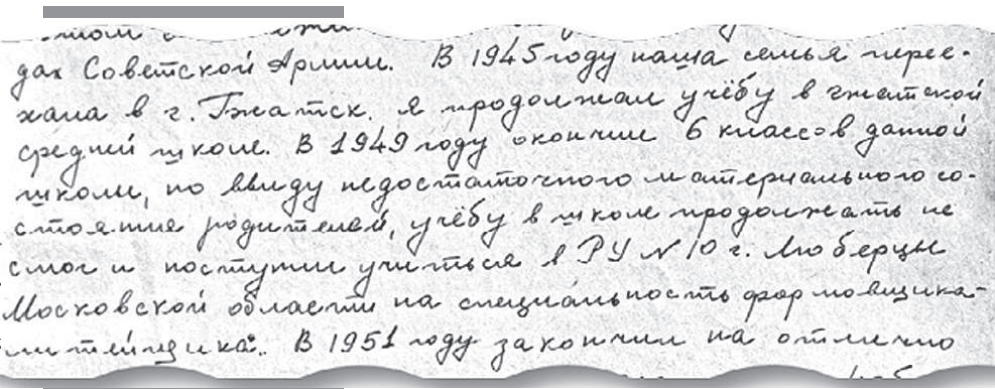 дах Советской Армии. В 1945 году наша семья перее-
хала в г. Гжатск. я продолжал учёбу в гжатской
средней школе. В 1949 году окончил 6 классов данной
школы, но ввиду недостаточного материального со-
стояния родителей, учёбу в школе продолжать не
смог и поступил учиться в РУ № 10 г. Люберцы
Московской области на специальность формовщика-
литейщика. В 1951 году закончил на отлично